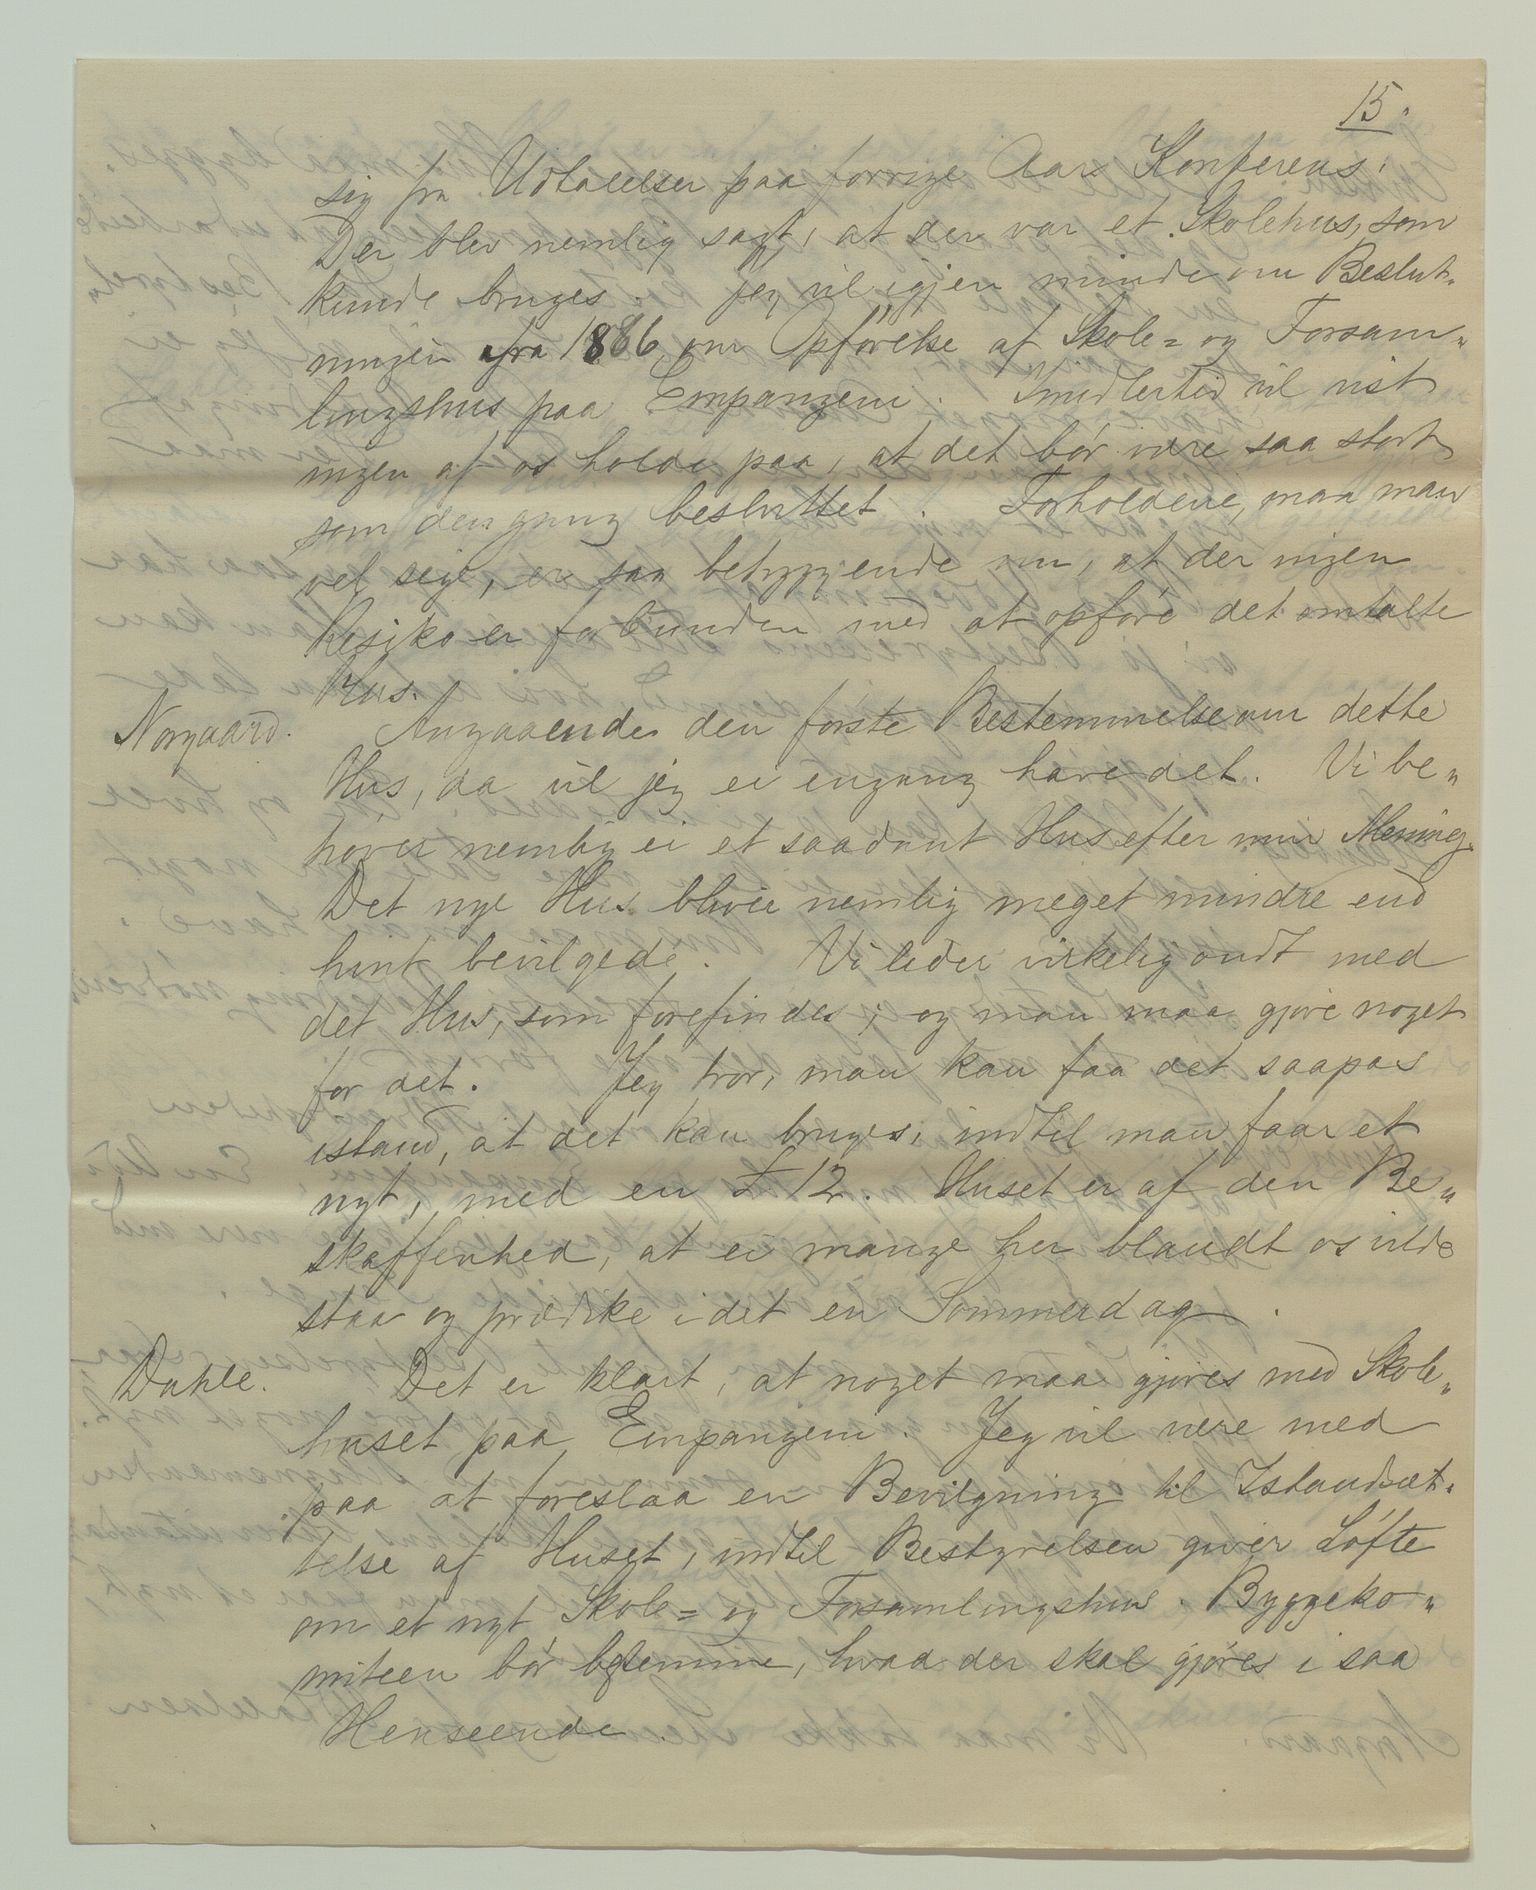 15.
sig fra Udtalelser paa forrige Aars Konferens.
Der blev nemlig sagt, at der var et Skolehus, som
kunde bruges. Jeg vil igjen minde om Beslut„
ningen fra 1886 om Opførelse af Skole= og Forsam„
lingshus paa Empangeni. Imidlertid vil vist
ingen af os holde paa, at det bør være saa stort
som dengang besluttet. Forholdene, maa man
vel sige, er saa betryggende nu, at der ingen
Risiko er forbunden med at opføre det omtalte
Hus.
Norgaard. Angaaende den første Bestemmelse om dette
Hus, da vil jeg ei engang have det. Vi be„
høver nemlig ei et saadant Hus efter min Mening.
Det nye Hus bliver nemlig meget mindre end
hint bevilgede. Vi lider virkelig ondt med
det Hus, som forefindes; og man maa gjøre noget
for det. Jeg tror, man kan faa det saapas
istand, at det kan bruges, indtil man faar et
nyt, med en £ 12. Huset er af den Be„
skaffenhed, at ei mange her blandt os vilde
staa og prædike i det en Sommerdag.
Dahle. Det er klart, at noget maa gjøres med Skole„
huset paa Empangeni. Jeg vil være med
paa at foreslaa en Bevilgning til Istandsæt„
telse af Huset, indtil Bestyrelsen giver Løfte
om et nyt Skole= og Forsamlingshus. Byggeko„
miteen bør bestemme, hvad der skal gjøres i saa
Henseende.